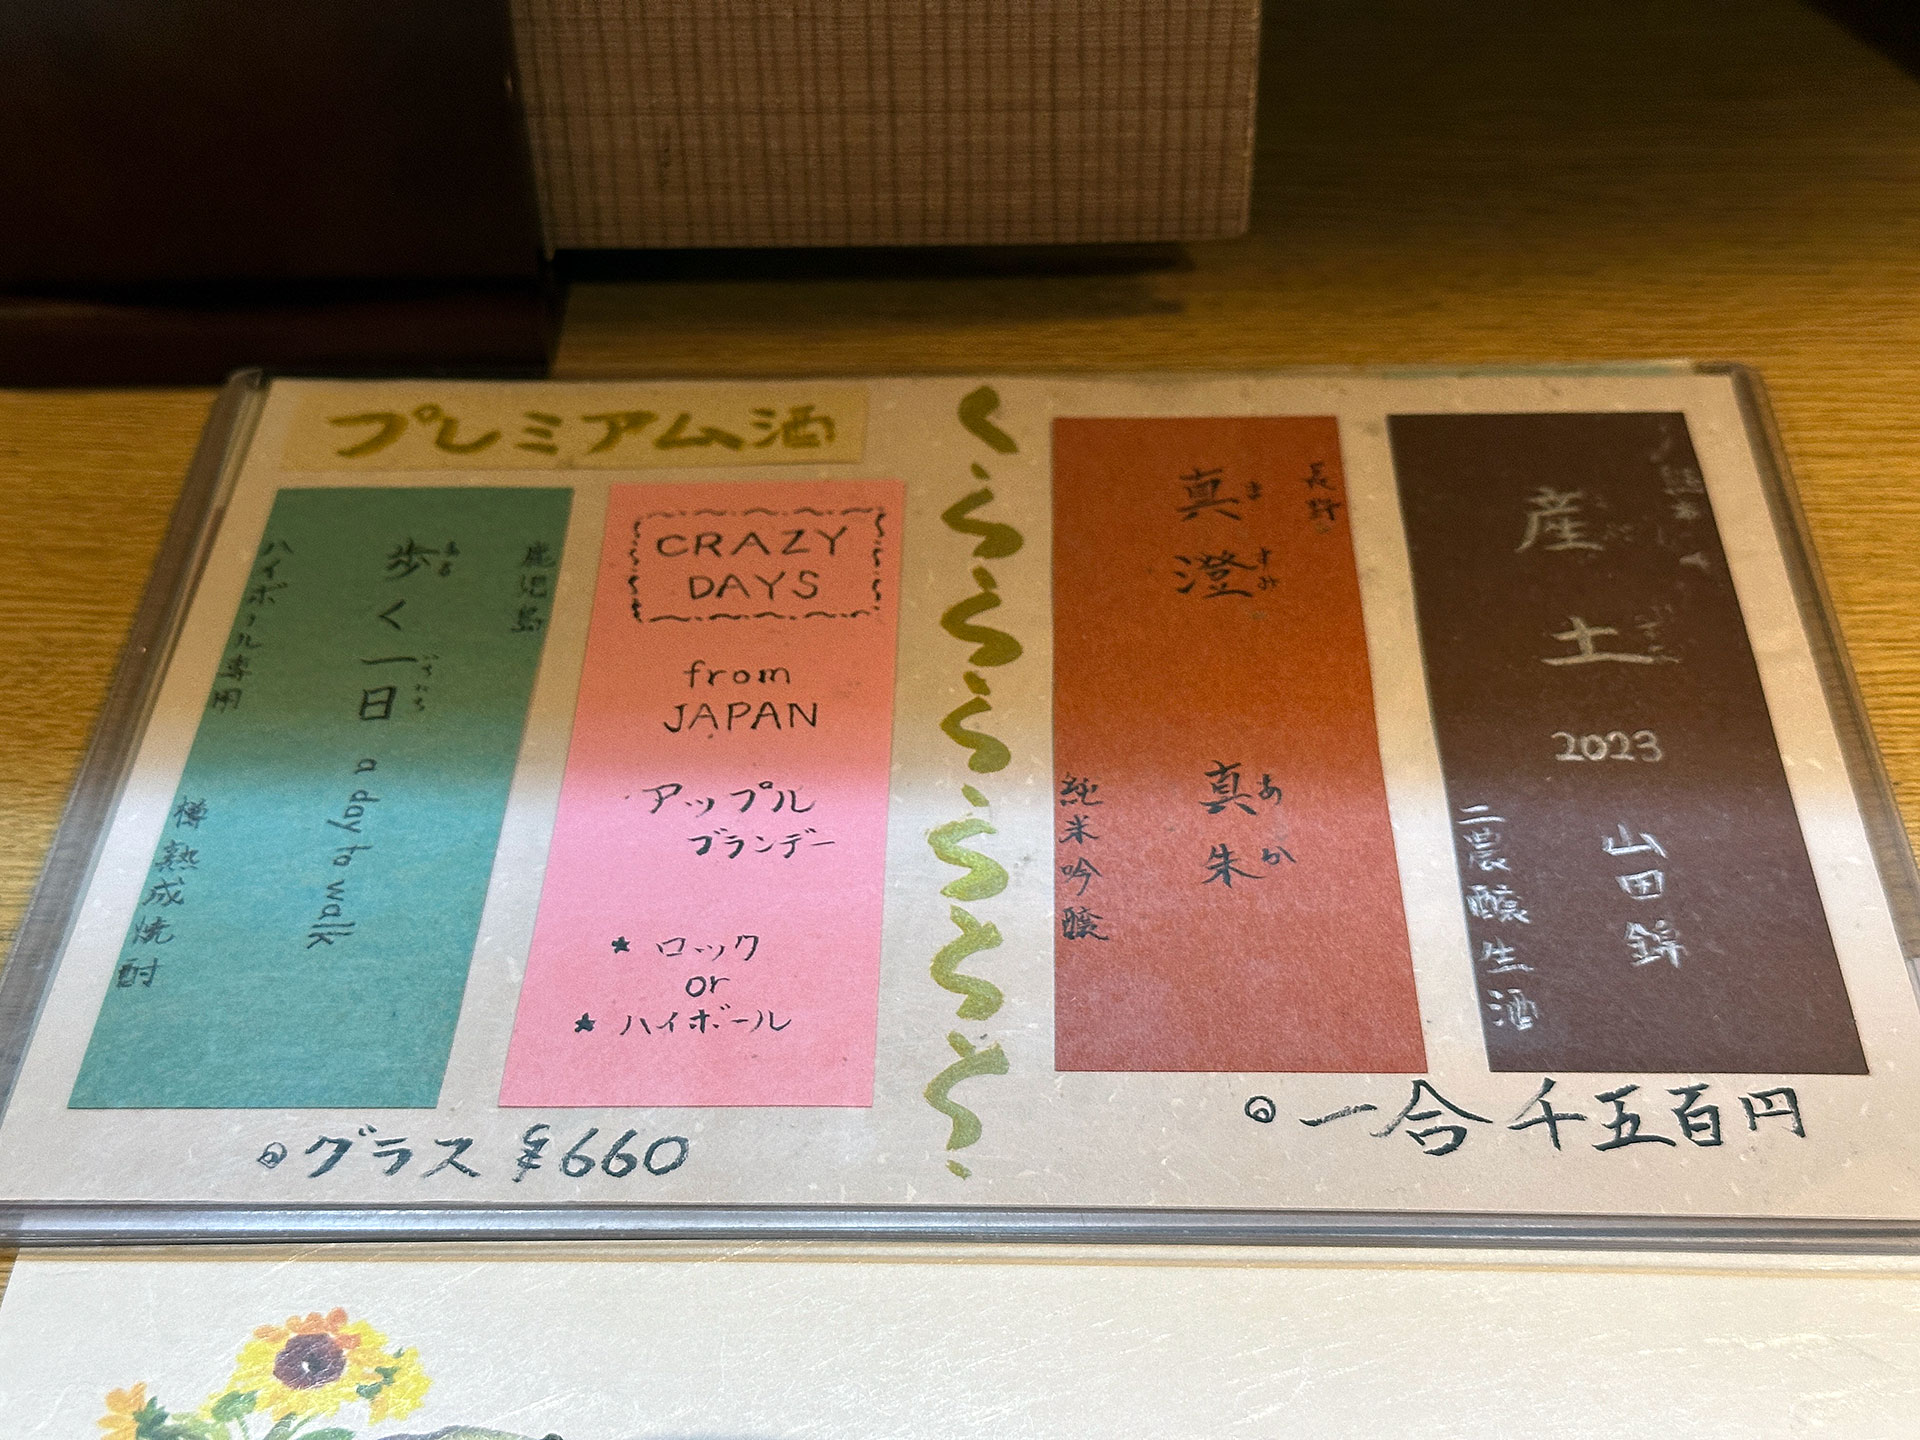 プレミアム酒
鹿児島
歩く一日 a day to walk
ある
いちにち
ハイボール専用
樽熟成焼酎
CRAZY
DAYS
from
JAPAN
アップル
ブランデー
★ ロック
or
★ ハイボール
◎グラス ¥660
長野
真澄 真朱
ますみ
あか
純米吟醸
熊本
産土 2023 山田錦
二農醸生酒
◎一合 千五百円